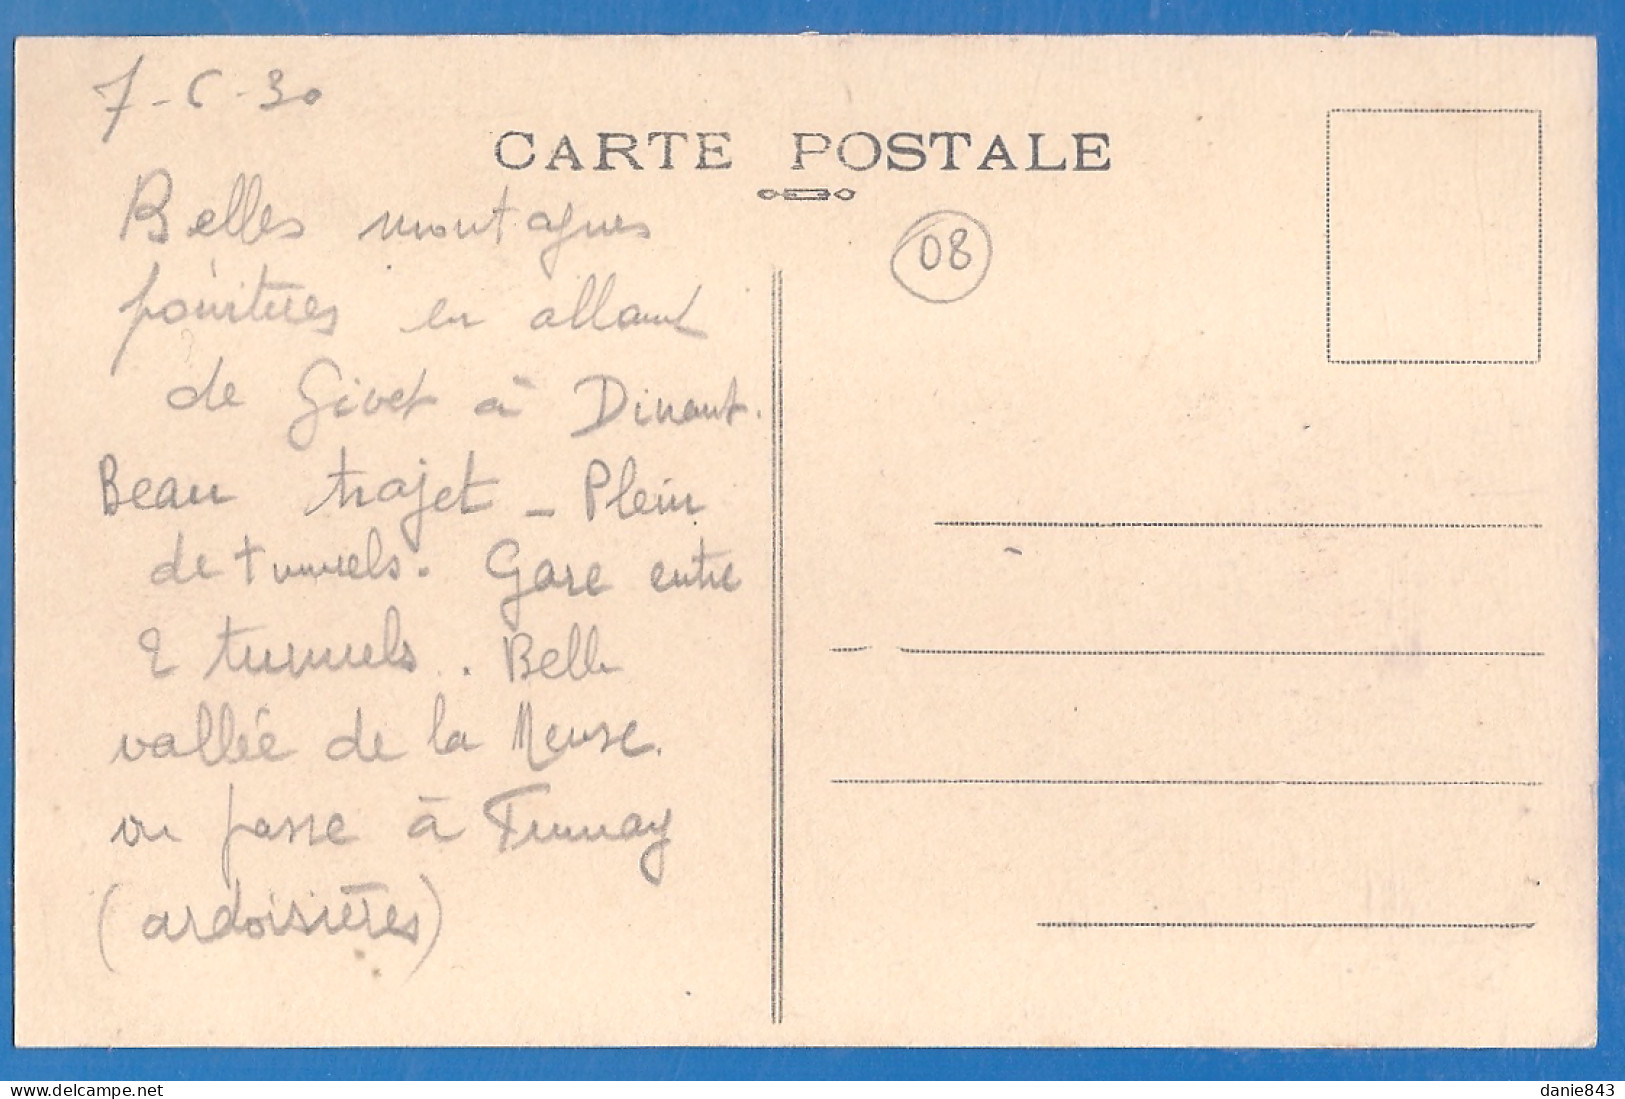 7-6-30
CARTE POSTALE
08
Belles montagnes
pointues en allant
de Givet à Dinant.
Beau trajet - Plein
de tunnels. Gare entre
2 tunnels. Belle
vallée de la Meuse.
on passe à Fumay
(ardoisières)
danie843